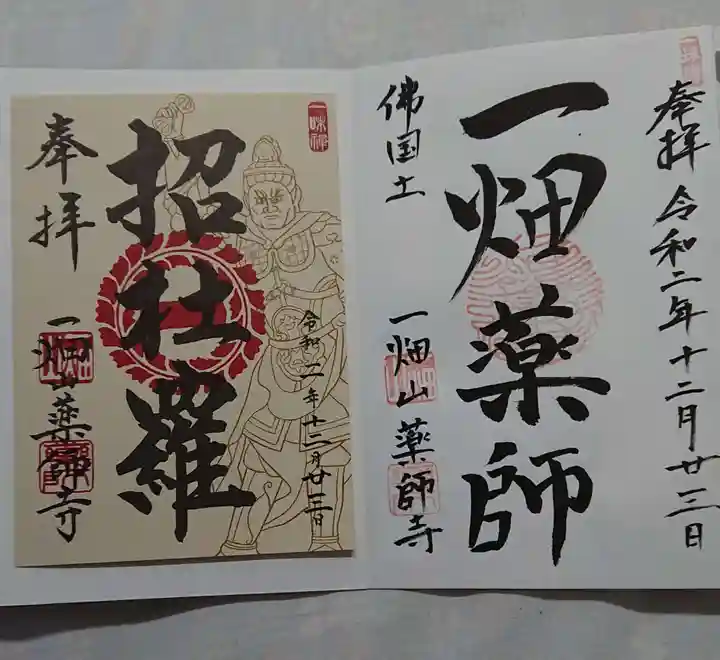 奉拝 令和二年十二月廿三日
一畑薬師
佛国土
一畑山薬師寺
一味禅
令和二年十二月廿三日
招杜羅
奉拝
一畑山薬師寺